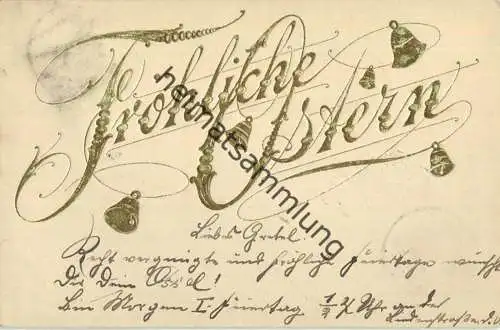 Fröhliche
Ostern
heimatsammlung
Liebes Gretel!
Recht vergnügte und fröhliche Feiertage wünscht
Dir Dein
Am Morgen I. Feiertag ½ 2 Uhr an der
Lindenstraße